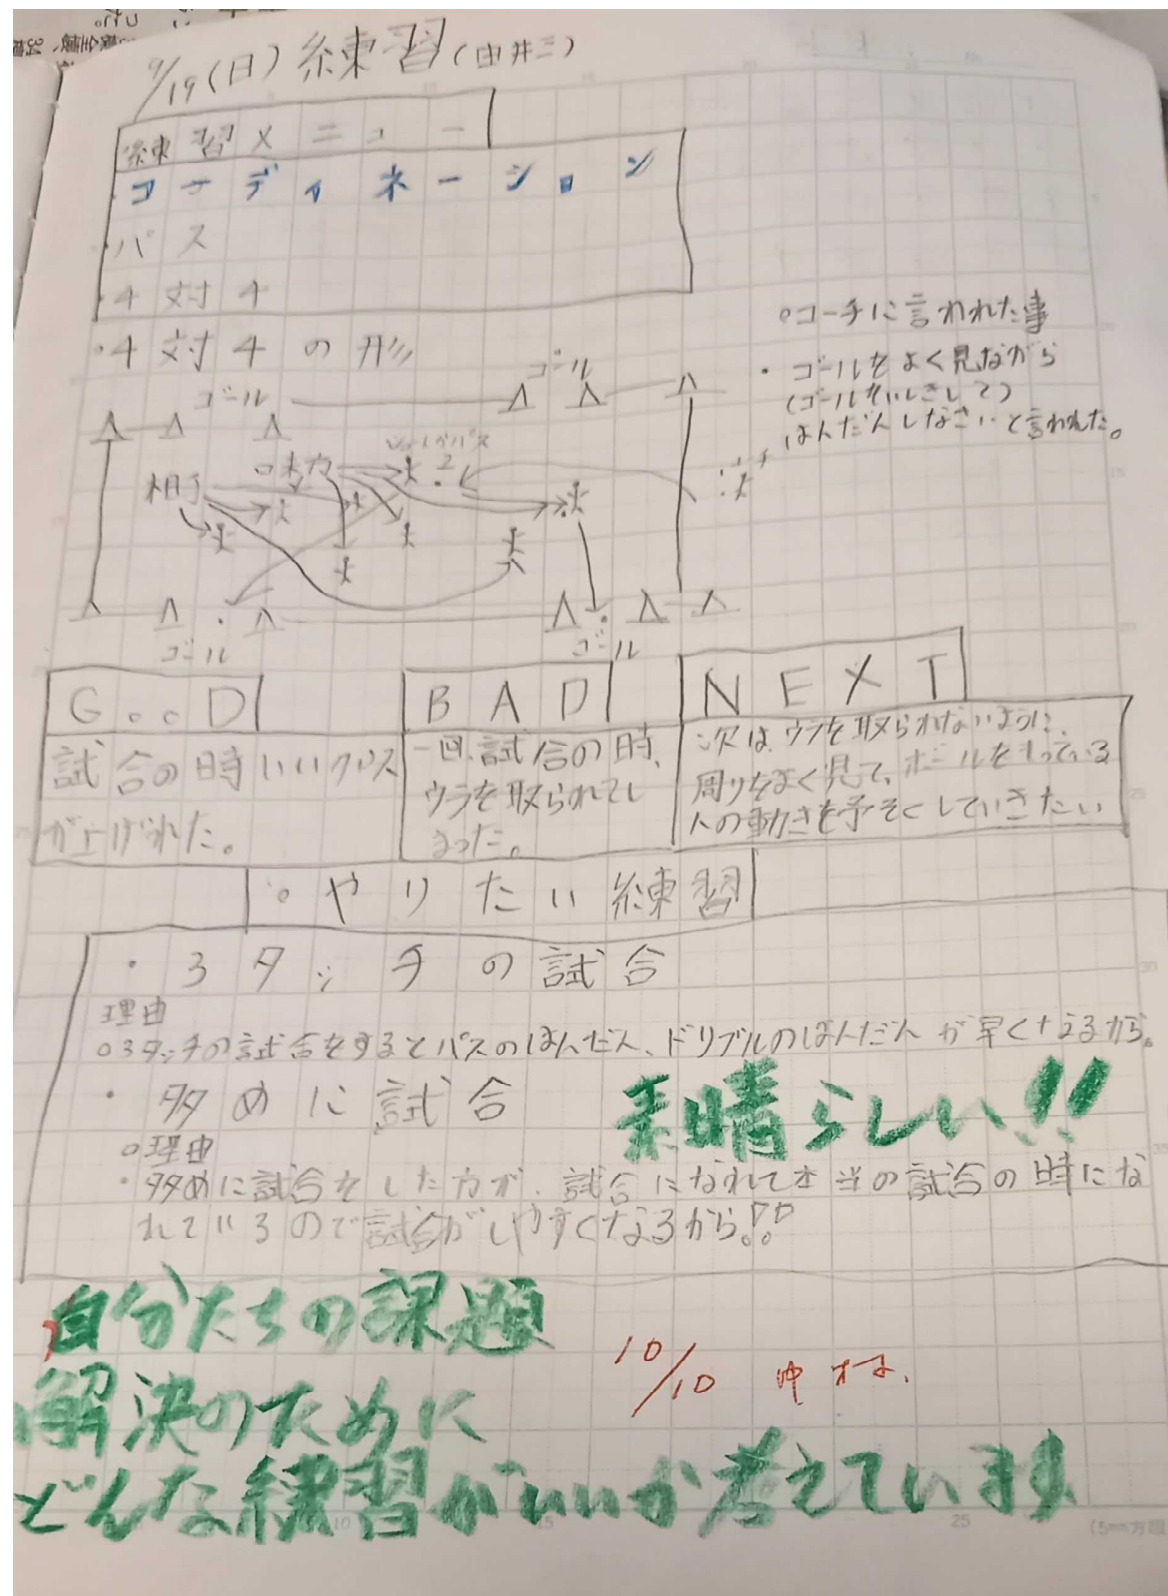 9/19(日)練習(由井三)
練習メニュー
・コーディネーション
・パス
・4対4
・4対4の形
ゴール
ゴール
相手
味方
2
コーチ
ゴール
ゴール
○コーチに言われた事
・ゴールをよく見ながら
(ゴールをいしきして)
はんだんしなさいと言われた。
GooD
試合の時いいクロス
が上げれた。
BAD
一回、試合の時、
ウラを取られてし
まった。
NEXT
次は、ウラを取られないように、
周りをよく見て、ボールをもっている
人の動きを予そくしていきたい
○やりたい練習
・3タッチの試合
理由
○3タッチの試合をするとパスのはんだん、ドリブルのはんだんが早くなるから。
・多めに試合
○理由
・多めに試合をした方が、試合になれて本当の試合の時にな
れているので試合がしやすくなるから!!
素晴らしい!!
自分たちの課題
解決のために
どんな練習がいいか考えています
10/10
(5mm方眼